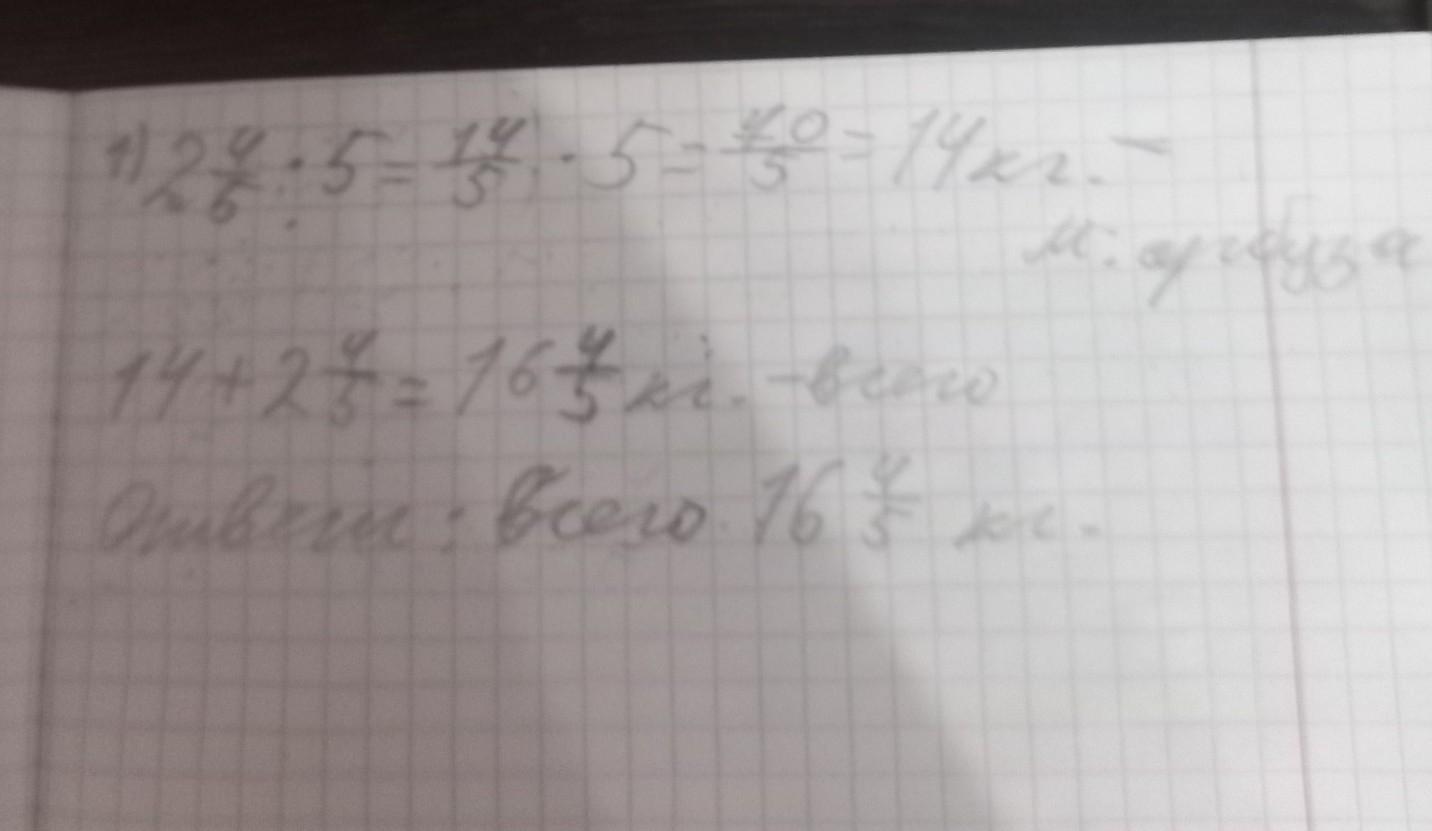 1) 2 4/5 · 5 = 14/5 · 5 = 70/5 = 14 кг. –
м. арбуза
14 + 2 4/5 = 16 4/5 кг. – всего
Ответ: всего 16 4/5 кг.